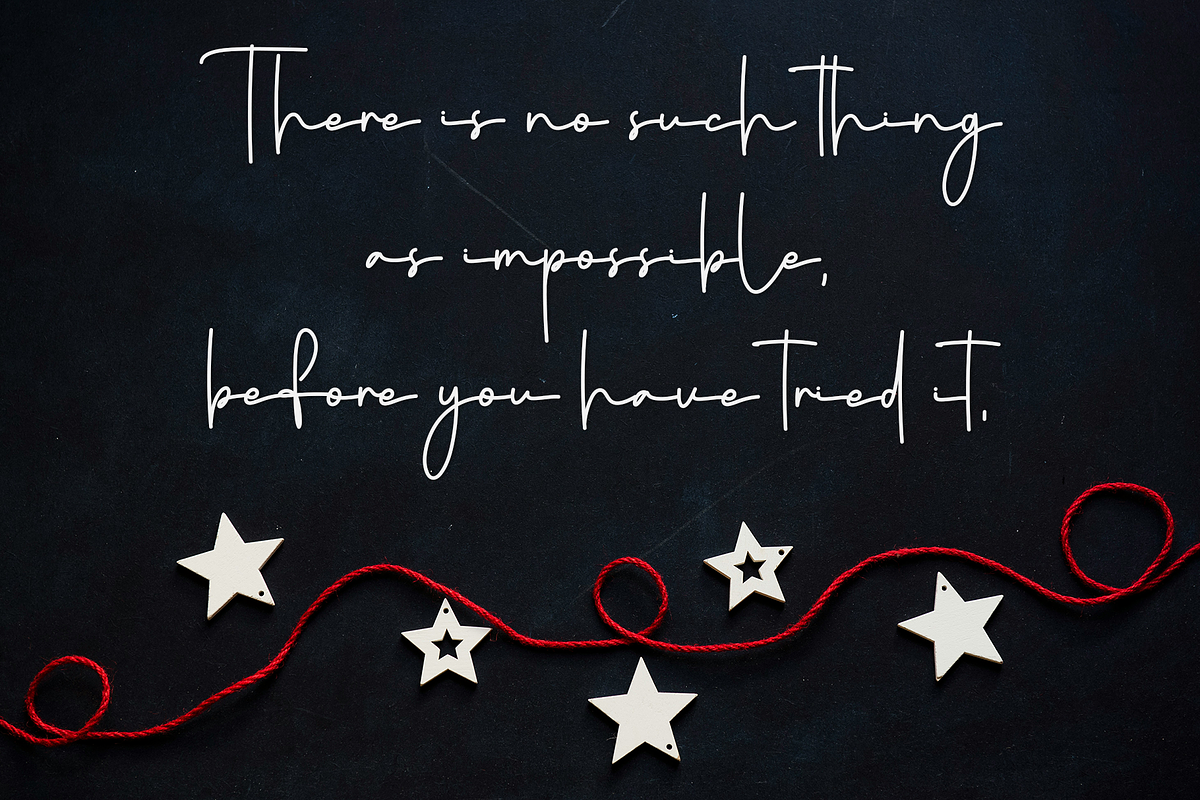 There is no such thing
as impossible,
before you have tried it.